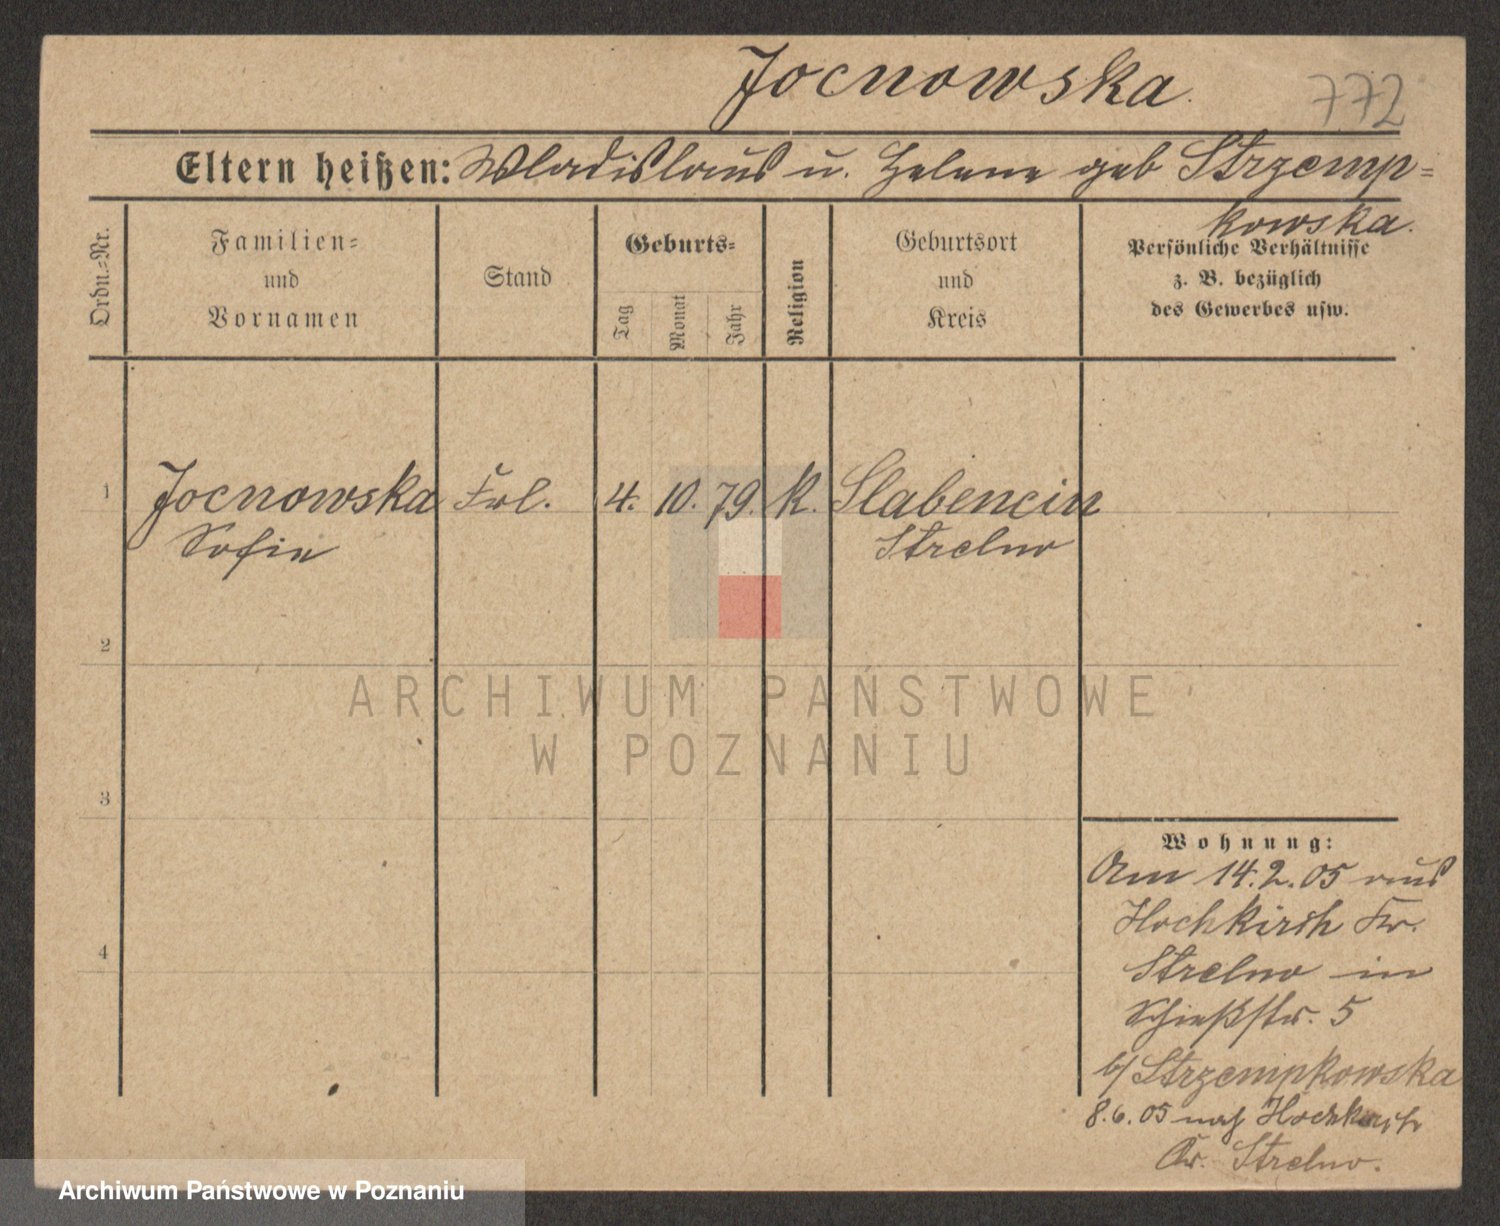 Jocnowska.
772
Eltern heißen: Wladislaus u. Helene geb Strzemp=
kowska.
Ordn.=Nr.
Familien=
und
Vornamen
Stand
Geburts=
Tag
Monat
Jahr
Religion
Geburtsort
und
Kreis
Persönliche Verhältnisse
z. B. bezüglich
des Gewerbes usw.
1 Jocnowska Frl. 4. 10. 79. K. Slabencin
Sofie Strelno
2
ARCHIWUM PAŃSTWOWE
W POZNANIU
3
Wohnung:
Am 14.2.05 aus
Hochkirch Kr.
4
Strelno in
Schießstr. 5
b/ Strzempkowska
8.6.05 nach Hochkirch
Kr. Strelno.
Archiwum Państwowe w Poznaniu